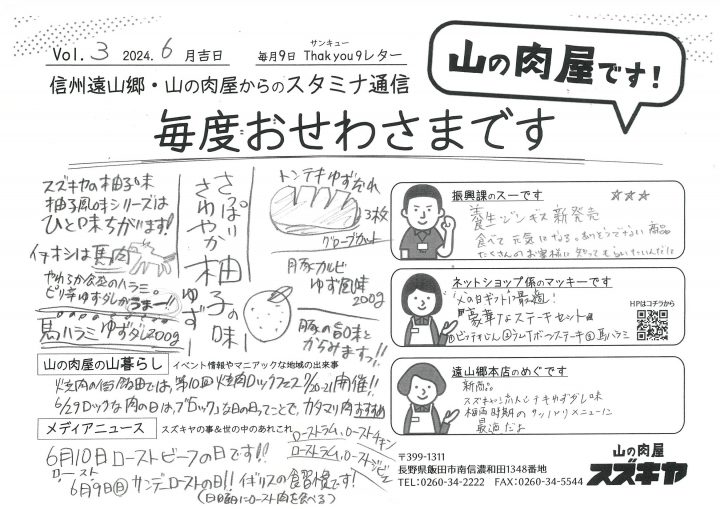 Vol. 3 2024. 6 月吉日
毎月9日 Thakyou9レター
サンキュー
山の肉屋です!
信州遠山郷・山の肉屋からのスタミナ通信
毎度おせわさまです
スズキヤの柚子味
柚子風味シリーズは
ひと味ちがいます!
イチオシは馬肉
やわらか食感のハラミ。
ピリ辛ゆずダレがうまー!!
馬ハラミゆずダレ200g
さっぱり
さわやか
柚子の味
ゆず
トンテキゆずだれ
3枚
グローブカット
豚カルビ
ゆず風味
200g
豚の旨味と
からみますっ!!
振興課のスーです
☆☆☆
養生ジンギス新発売
食べて元気になる。ありそうでない商品
たくさんのお客様に知ってもらいたいんだに
ネットショップ係のマッキーです
HPはコチラから
"父の日ギフト"に最適!
『豪華なステーキセット』
遠山郷本店のめぐです
新商品
スズキヤ トンテキゆずダレ味
梅雨時期のサッパリメニューに
最適だよ
山の肉屋の山暮らし イベント情報やマニアックな地域の出来事
焼肉の街飯田では、第10回焼肉ロックフェス7/20-21開催!!
6/29ロックな肉の日は、"ブロック"な日の日ってことで、カタマリ肉おすすめ
メディアニュース スズキヤの事&世の中のあれこれ
6月10日ローストビーフの日です!!
ローストラム、ローストチキン
ローストラム、ローストジビエ
ロースト
6月9日(日)サンデーローストの日!! イギリスの食習慣です!
(日曜日にロースト肉を食べる)
〒399-1311
長野県飯田市南信濃和田1348番地
TEL:0260-34-2222 FAX:0260-34-5544
山の肉屋
スズキヤ